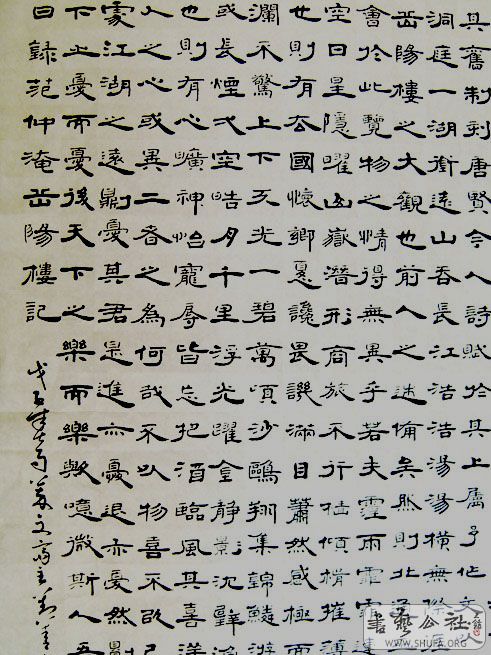 其舊制刻唐賢今人詩賦於其上屬予作文
洞庭一湖銜遠山吞長江浩浩湯湯橫無際
岳陽樓之大觀也前人之述備矣然則北
會於此覽物之情得無異乎若夫霪雨霏霏連
空日星隱曜山嶽潛形商旅不行檣傾楫摧薄
也則有去國懷鄉憂讒畏譏滿目蕭然感極而
瀾不驚上下天光一碧萬頃沙鷗翔集錦鱗游
或長煙一空皓月千里浮光躍金靜影沉璧漁
也則有心曠神怡寵辱皆忘把酒臨風其喜洋
人之心或異二者之為何哉不以物喜不以己
處江湖之遠則憂其君是進亦憂退亦憂然則
下之憂而憂後天下之樂而樂歟噫微斯人吾
曰錄范仲淹岳陽樓記
戊子年 文齋主劉
書藝公社
WWW.SHUFA.ORG